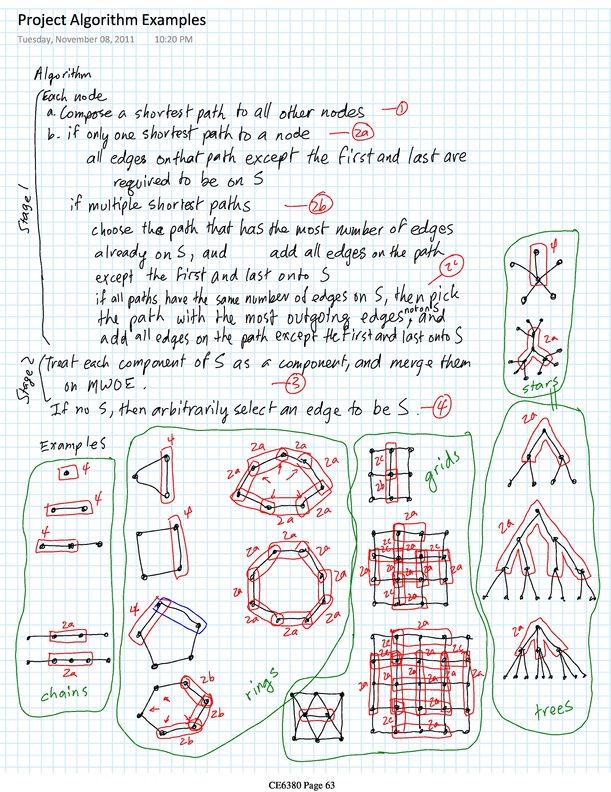 Project Algorithm Examples
Tuesday, November 08, 2011 10:20 PM
Algorithm
Stage 1
Each node
a. Compose a shortest path to all other nodes 1
b. if only one shortest path to a node 2a
all edges on that path except the first and last are
required to be on S
if multiple shortest paths 2b
choose the path that has the most number of edges
already on S, and add all edges on the path
except the first and last onto S 2c
if all paths have the same number of edges on S, then pick
the path with the most outgoing edges not on S, and
add all edges on the path except the first and last onto S
Stage 2
Treat each component of S as a component, and merge them
on MWOE. 3
If no S, then arbitrarily select an edge to be S. 4
4
2a
stars
Examples
4
4
4
2a
2a
chains
4
4
4
2b
2b
2b
2a
2a
2a
2a
2a
2a
2a
2a
2a
2a
2a
2a
2a
rings
2c
2b
grids
2a
2c
2c
2a
2a
2a
2a
2a
2a
2a
2c
2c
2a
2a
2a
2a
2a
2a
2a
2a
2a
2a
2a
trees
CE6380 Page 63